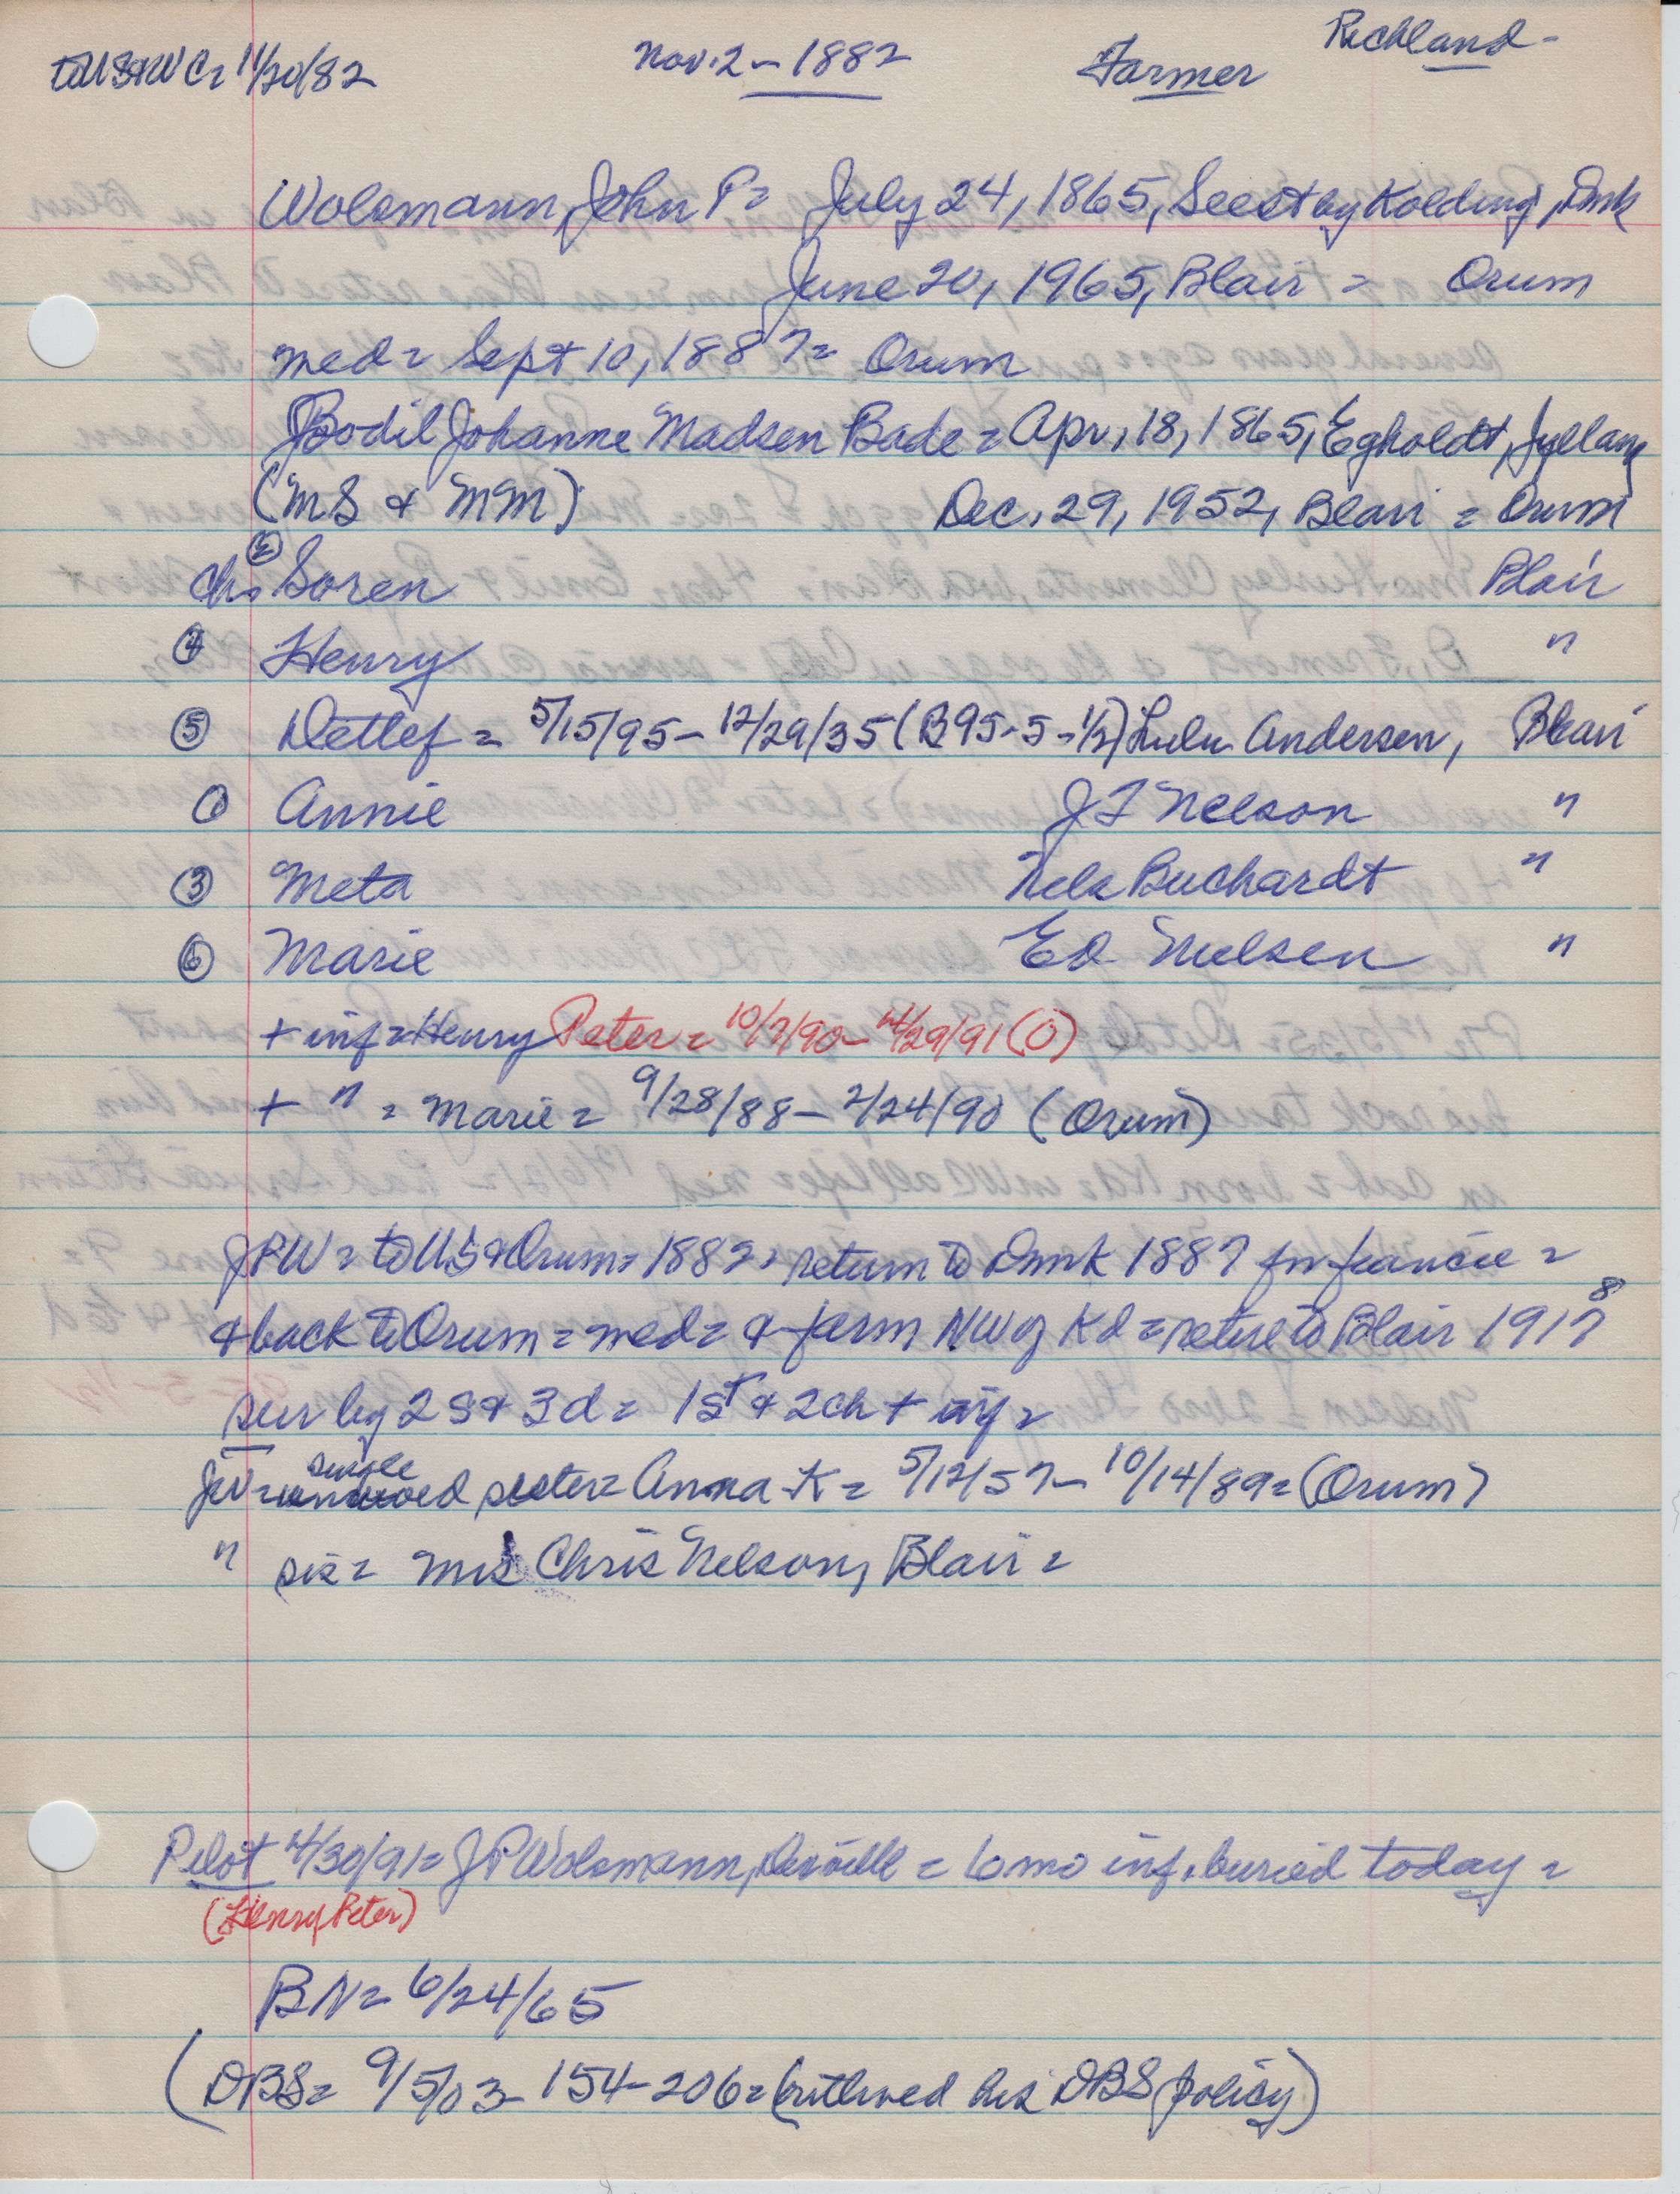 to US & WC = 11/20/82 Nov. 2 - 1882 Farmer Richland -
Wolsmann, John P = July 24, 1865, Seest by Kolding, Dmk
June 20, 1965, Blair = Orum
med = Sept 10, 1887 = Orum
Bodil Johanne Madsen Bade = Apr, 18, 1865, Egholdt, Jylland
(MS & MM) Dec. 29, 1952, Blair = Orum
ch. ② Soren Blair
④ Henry "
⑤ Detlef = 5/15/95 - 12/29/35 (B95-5-1/2) Lulu Andersen, Blair
① Annie J F Nelson "
③ Meta Nels Buchardt "
⑥ Marie Ed Nielsen "
+ inf = Henry Peter = 10/7/90 - 4/29/91 (O)
+ " = Marie = 9/28/88 - 2/24/90 (Orum)
JPW = to US & Orum = 1882, return to Dmk 1887 for fiancee =
& back to Orum = med = & farm NW of Kd = retire to Blair 1917 8
sur by 2 s & 3 d = 1 st & 2 ch + inf =
JW = single sister = Anna K = 5/12/57 - 10/14/89 = (Orum)
" sis = Mrs Chris Nelson, Blair =
Pilot 4/30/91 = J P Wolsmann, = 6 mo inf. buried today =
(Henry Peter)
BN = 6/24/65
(DBS = 9/5/03 - 154 - 206 = (outlived his DBS policy)